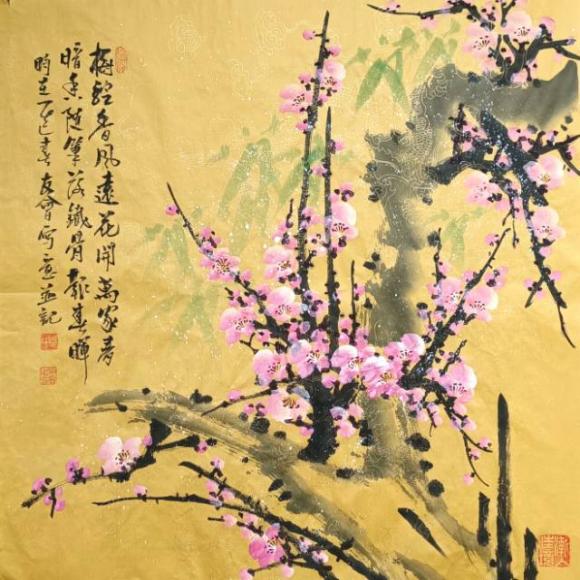 梅香风遠花開萬家春
暗香随筆落鐵骨報春暉
时在乙巳春友曾写意並記